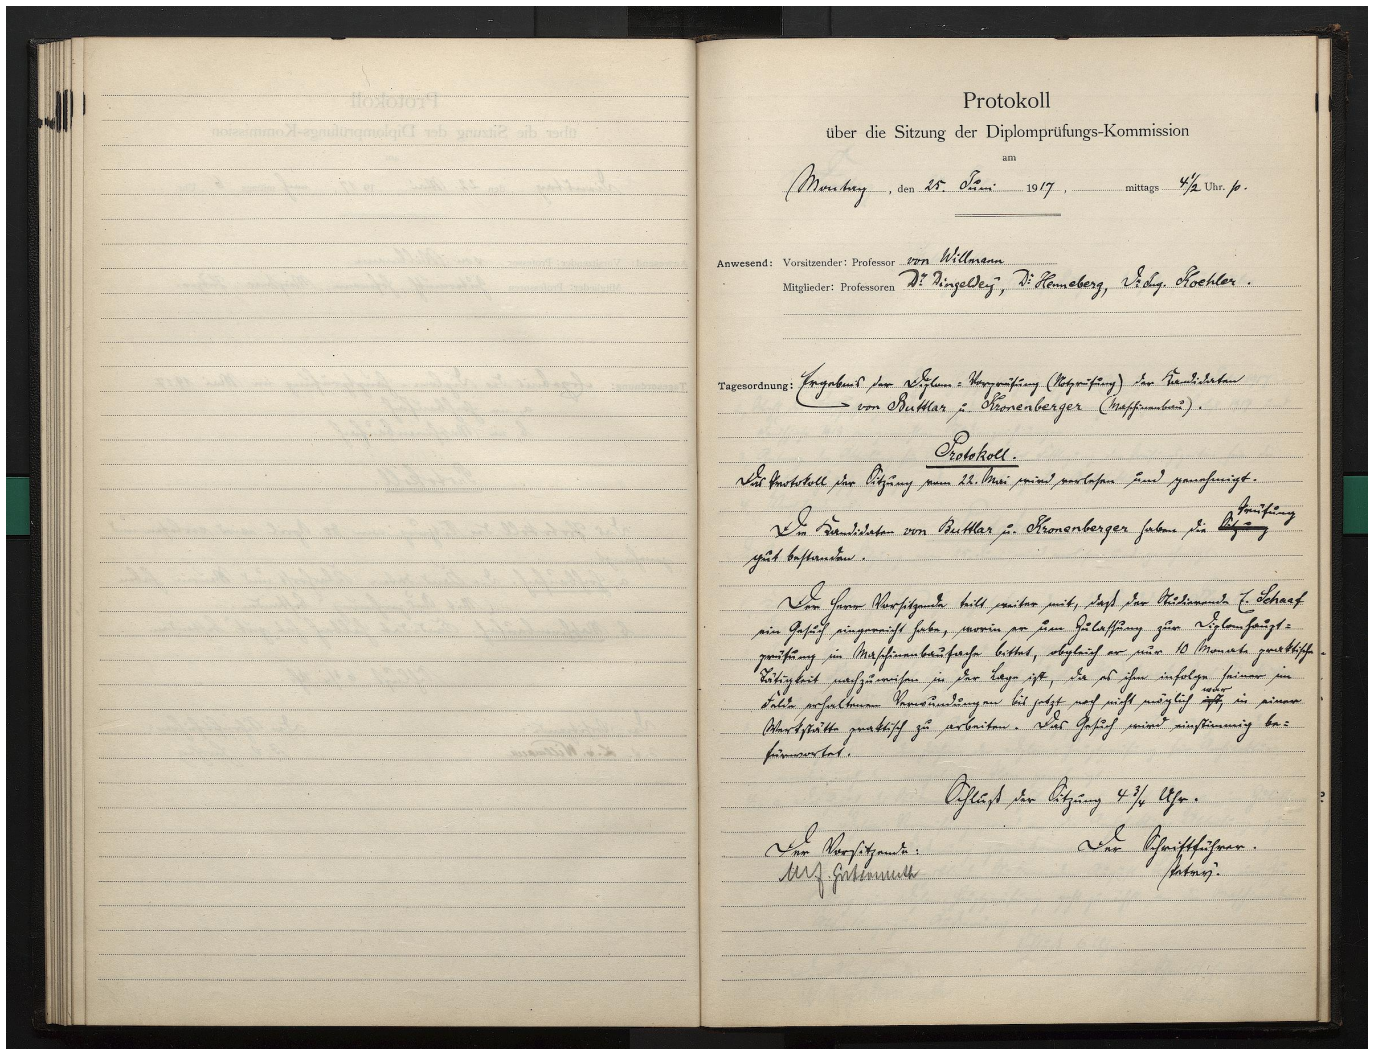 Protokoll
über die Sitzung der Diplomprüfungs-Kommission
am
Montag, den 25. Juni 1917, mittags 4 1/2 Uhr. p.
Anwesend: Vorsitzender: Professor von Willmann
Mitglieder: Professoren Dr. Dingeldey, Dr. Henneberg, Dr. Ing. Koehler.
Tagesordnung: Ergebnis der Diplom-Vorprüfung (Notprüfung) der Kandidaten
von Buttlar u. Kronenberger (Maschinenbau).
Protokoll.
Das Protokoll der Sitzung vom 22. Mai wird verlesen und genehmigt.
Prüfung
Die Kandidaten von Buttlar u. Kronenberger haben die Sitzung
gut bestanden.
Der Herr Vorsitzende teilt weiter mit, daß der Studierende E. Schaaf
ein Gesuch eingereicht habe, worin er um Zulassung zur Diplomhaupt=
prüfung im Maschinenbaufache bittet, obgleich er nur 10 Monate praktische
Tätigkeit nachzuweisen in der Lage ist, da es ihm infolge seiner im
war
Felde erhaltenen Verwundungen bis jetzt noch nicht möglich ist, in einer
Werkstätte praktisch zu arbeiten. Das Gesuch wird einstimmig be=
fürwortet.
Schluß der Sitzung 4 3/4 Uhr.
Der Vorsitzende: Der Schriftführer.
Gutermuth Petry.